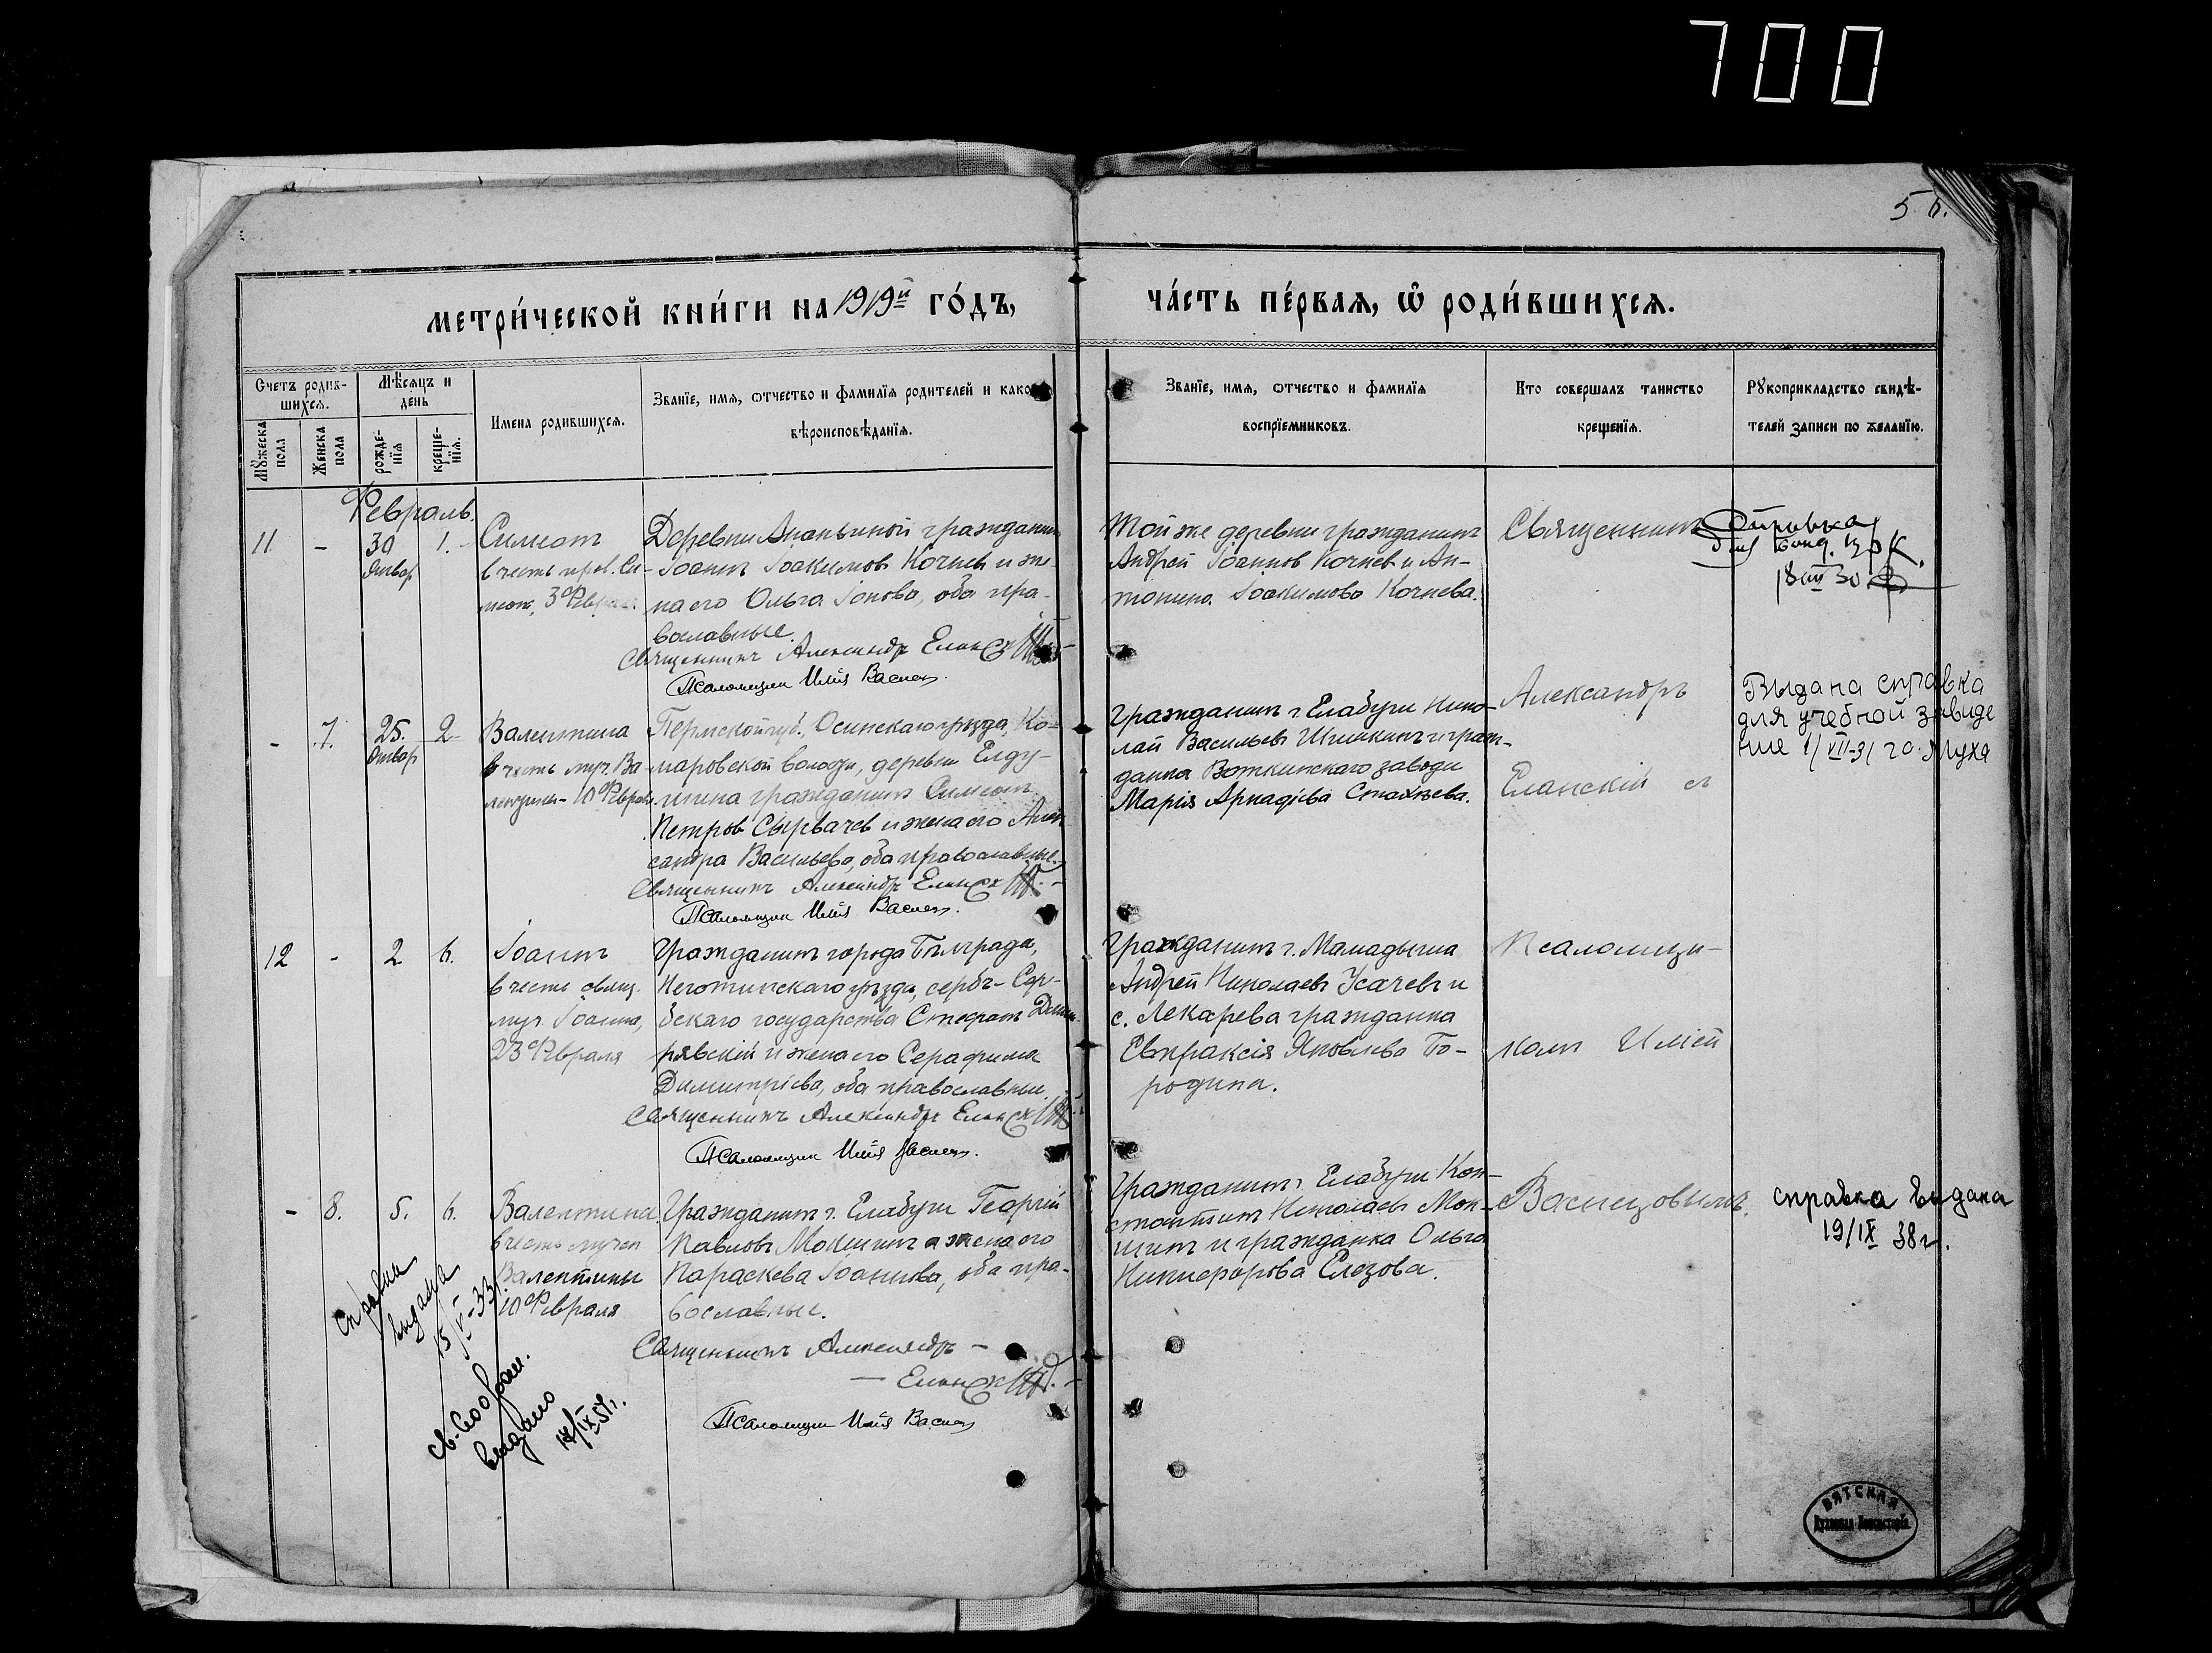 700
5
МЕТРИ́ЧЕСКОЙ КНИ́ГИ НА 1919й ГО́ДЪ,
ЧА́СТЬ ПЕ́РВАЯ, Ѡ РОДИ́ВШИХСЯ.
Счетъ родив-
шихся.
Мужеска
пола
Женска
пола
Мѣсяцъ и
день
рожде-
нїя
креще-
нїя.
Имена родившихся.
Званїе, имя, ѻтчество и фамилїя родителей и како
вѣроисповѣданїя.
Званїе, имя, ѻтчество и фамилїя
воспрїемниковъ.
Кто совершалъ таинство
крещенїя.
Рꙋкоприкладство свидѣ-
телей записи по желанїю.
Февраль.
11
-
30
Январ
1.
Симеонъ
в честь прав. Си-
меон, 3 Феврал
Деревни Ананьиной гражданин
Іоаннъ Іоакимовъ Кочнев и же-
на его Ольга Іонова, оба пра-
вославные.
Священникъ Александръ Еланск
Псаломщик Илия Васнец
Той же деревни гражданинъ
Андрей Іоаннов Кочнев и Ан-
тонина Іоакимова Кочнева.
Священникъ
Справка
18/III 30
-
7.
25.
Январ
2
Валентина
в честь муч. Ва-
лентины - 10 Феврал
Пермской губ., Осинскаго уѣзда, Ко-
маровской волости, деревни Елду-
гражданинъ Симеон
Петров Сырвачев и жена его Алек
сандра Васильева, оба православные.
Священникъ Александръ Еланск
Псаломщик Илия Васнец.
Гражданинъ г. Елабуги Нико-
лай Васильевъ Шишкинъ и граж-
данка Воткинскаго завода
Марія Аркадіева Стахѣева.
Александръ
Еланскій съ
Выдана справка
для учебной заведе
ние 1/VII-31 го. Муха
12
-
2
6.
Іоаннъ
в честь свящ.
муч. Іоанна,
23 Февраля
Гражданинъ города Бѣлграда,
Неготинскаго уѣзда, сербъ - Сер-
бскаго государства Стефанъ
и жена его Серафима
Димитріева, оба православные.
Священникъ Александръ Еланск
Псаломщик Илия Васнец.
Гражданинъ г. Мамадыша
Андрей Николаевъ Усачевъ и
с. Лекарева гражданка
Евпраксія Яковлева Бо-
родина.
Псаломщи-
комъ Иліей
-
8.
5.
6.
Валентина
в честь мучен
Валентины
10 Февраля
Гражданинъ г. Елабуги Георгій
Павловъ Мокшинъ и жена его
Параскева Іоаннова, оба пра-
вославные.
Священникъ Александръ -
- Еланск
Псаломщик Илия Васнец
Гражданинъ г. Елабуги Кон-
стантинъ Николаевъ Мок-
шинъ и гражданка Ольга
Никифорова Елезова.
Васнецовымъ.
справка выдана
19/IX 38 г.
справка
выдана
15/V-33
св. Сообщен.
выдано
17/IX 51 г.
ВЯТСКАЯ
Духовная Консисторія